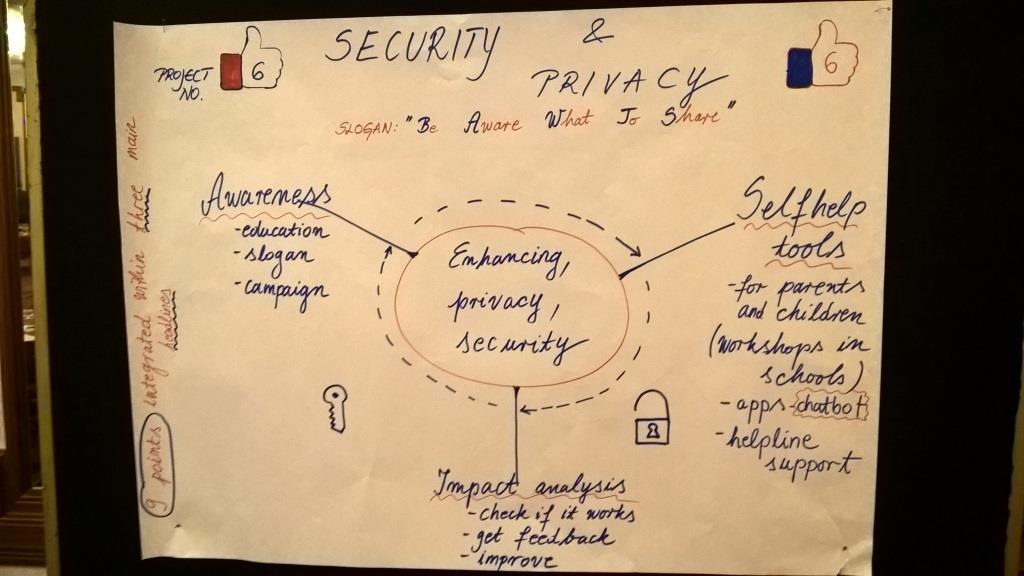 SECURITY &
PRIVACY
PROJECT
NO.
6
6
SLOGAN: "Be Aware What To Share"
Awareness
- education
- slogan
- campaign
Enhancing,
privacy,
security
Selfhelp
tools
- for parents
and children
(workshops in
schools)
- apps - chatbot
- helpline
support
Impact analysis
- check if it works
- get feedback
- improve
9 points integrated within three main
headlines